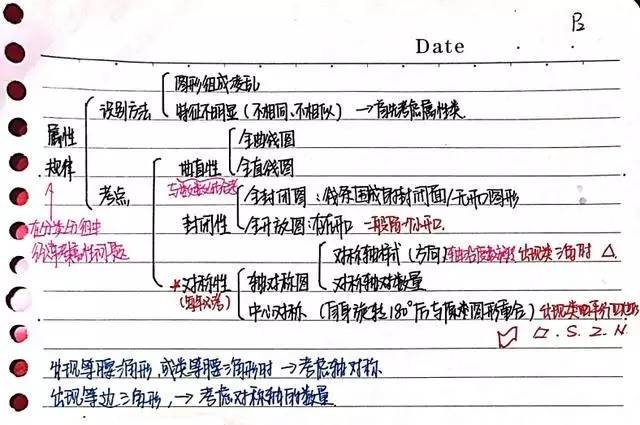 P2
Date
图形组成凌乱
识别方法
特征不明显（不相同、不相似） → 首先考虑属性类
属性
规律
全曲线图
曲直性
全直线图
考点
全封闭图：线条围成的封闭面/无开口图形
封闭性
全开放图：有开口 一般留一个小开口
在分类分组中
对称轴样式（方向） 出现类三角时 △
轴对称图
*对称性
对称轴数量
中心对称（自身旋转180°后与原来图形重合）出现类平行四边形
▱ . S . Z . N
出现等腰三角形，或类等腰三角形时 → 考虑轴对称
出现等边三角形， → 考虑对称轴的数量